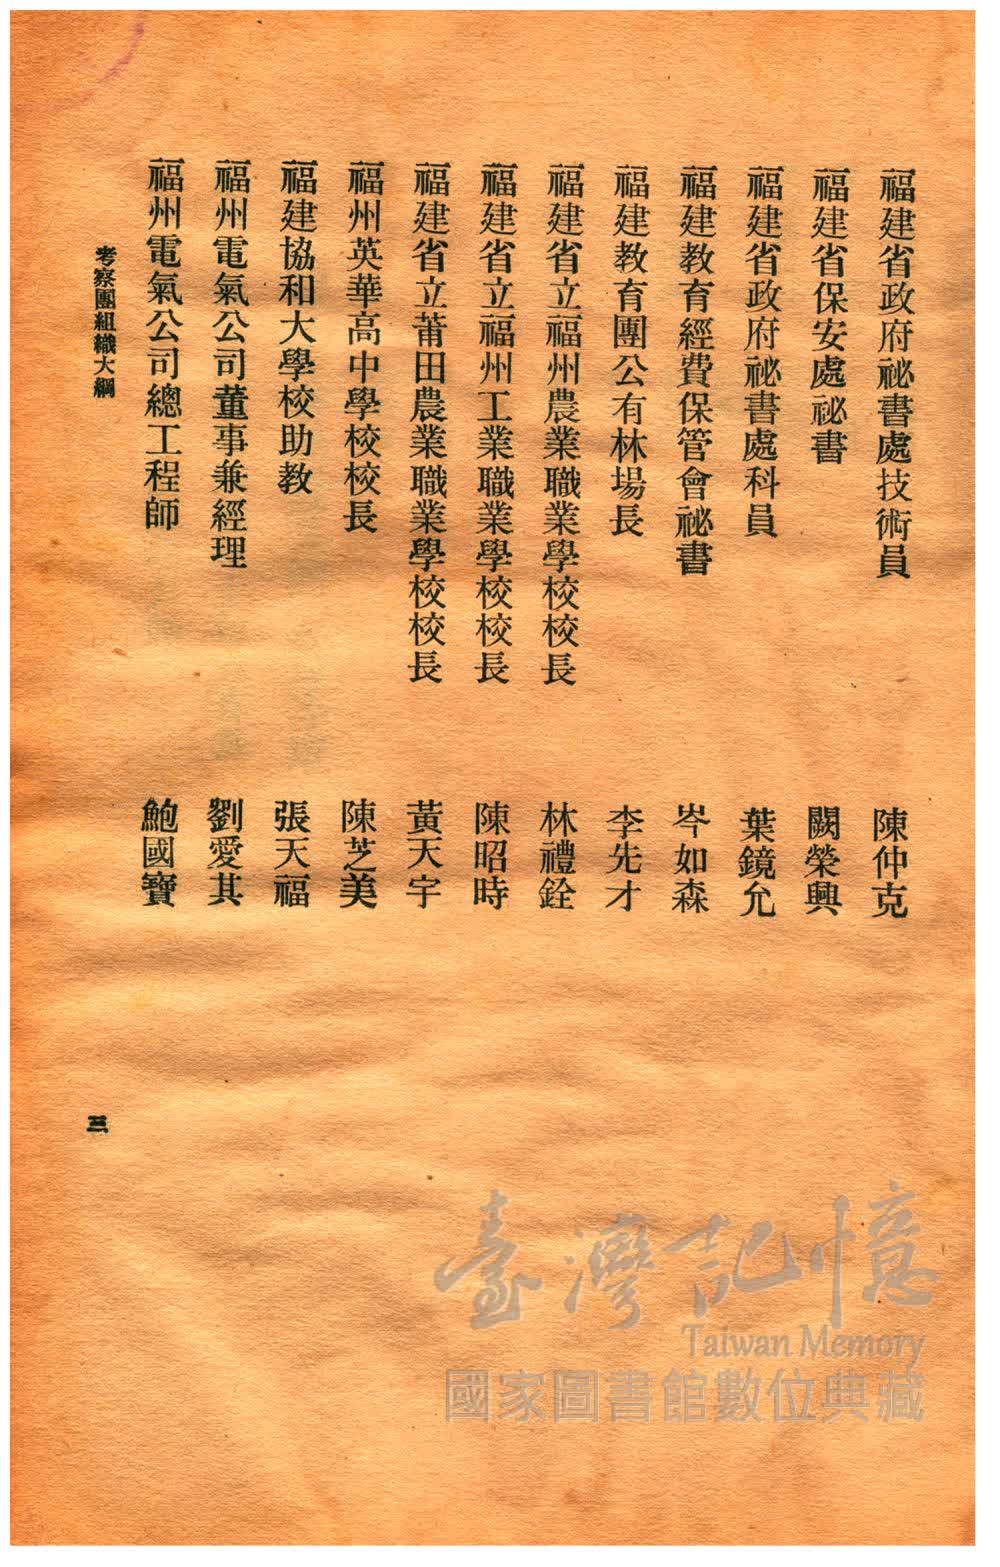 福建省政府祕書處技術員　陳仲克
福建省保安處祕書　闕榮興
福建省政府祕書處科員　葉鏡允
福建教育經費保管會祕書　岑如森
福建教育團公有林場長　李先才
福建省立福州農業職業學校校長　林禮銓
福建省立福州工業職業學校校長　陳昭時
福建省立莆田農業職業學校校長　黃天宇
福州英華高中學校校長　陳芝美
福建協和大學校助教　張天福
福州電氣公司董事兼經理　劉愛其
福州電氣公司總工程師　鮑國寶
考察團組織大綱
三
臺灣記憶
Taiwan Memory
國家圖書館數位典藏